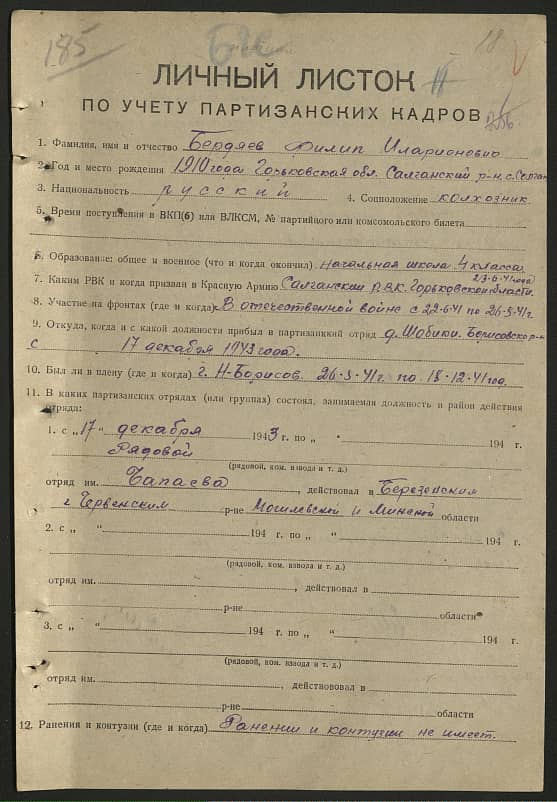 185
18
ЛИЧНЫЙ ЛИСТОК
ПО УЧЕТУ ПАРТИЗАНСКИХ КАДРОВ
1. Фамилия, имя и отчество Бердяев Филип Иларионович
2. Год и место рождения 1910 года Горьковская обл. Салганский р-н. с. Салган
3. Национальность русский 4. Соцположение колхозник.
5. Время поступления в ВКП(б) или ВЛКСМ, № партийного или комсомольского билета
6. Образование: общее и военное (что и когда окончил) Начальная школа 4 класса
23-6-41 года
7. Каким РВК и когда призван в Красную Армию Салганским РВК. Горьковской области.
8. Участие на фронтах (где и когда) В отечественной войне с 22-6-41 по 26-9-41 г.
9. Откуда, когда и с какой должности прибыл в партизанский отряд д. Шобики. Борисовского р-н
с 17 декабря 1943 года.
10. Был ли в плену (где и когда) г. Н-Борисов. 26-9-41г. по 18-12-41 год.
11. В каких партизанских отрядах (или группах) состоял, занимаемая должность и район действия
отряда:
1. с „17" декабря 1943 г. по „ " 194 г.
Рядовой
(рядовой, ком. взвода и т. д.)
отряд им. Чапаева, действовал в Березенским
и Червенским р-не Могилевской и Минской области
2. с „ " 194 г. по „ " 194 г.
(рядовой, ком. взвода и т. д.)
отряд им. , действовал в
р-не области
3. с „ " 194 г. по „ " 194 г.
(рядовой, ком. взвода и т. д.)
отряд им. , действововал в
р-не области
12. Ранения и контузии (где и когда) Ранении и контузии не имеет.